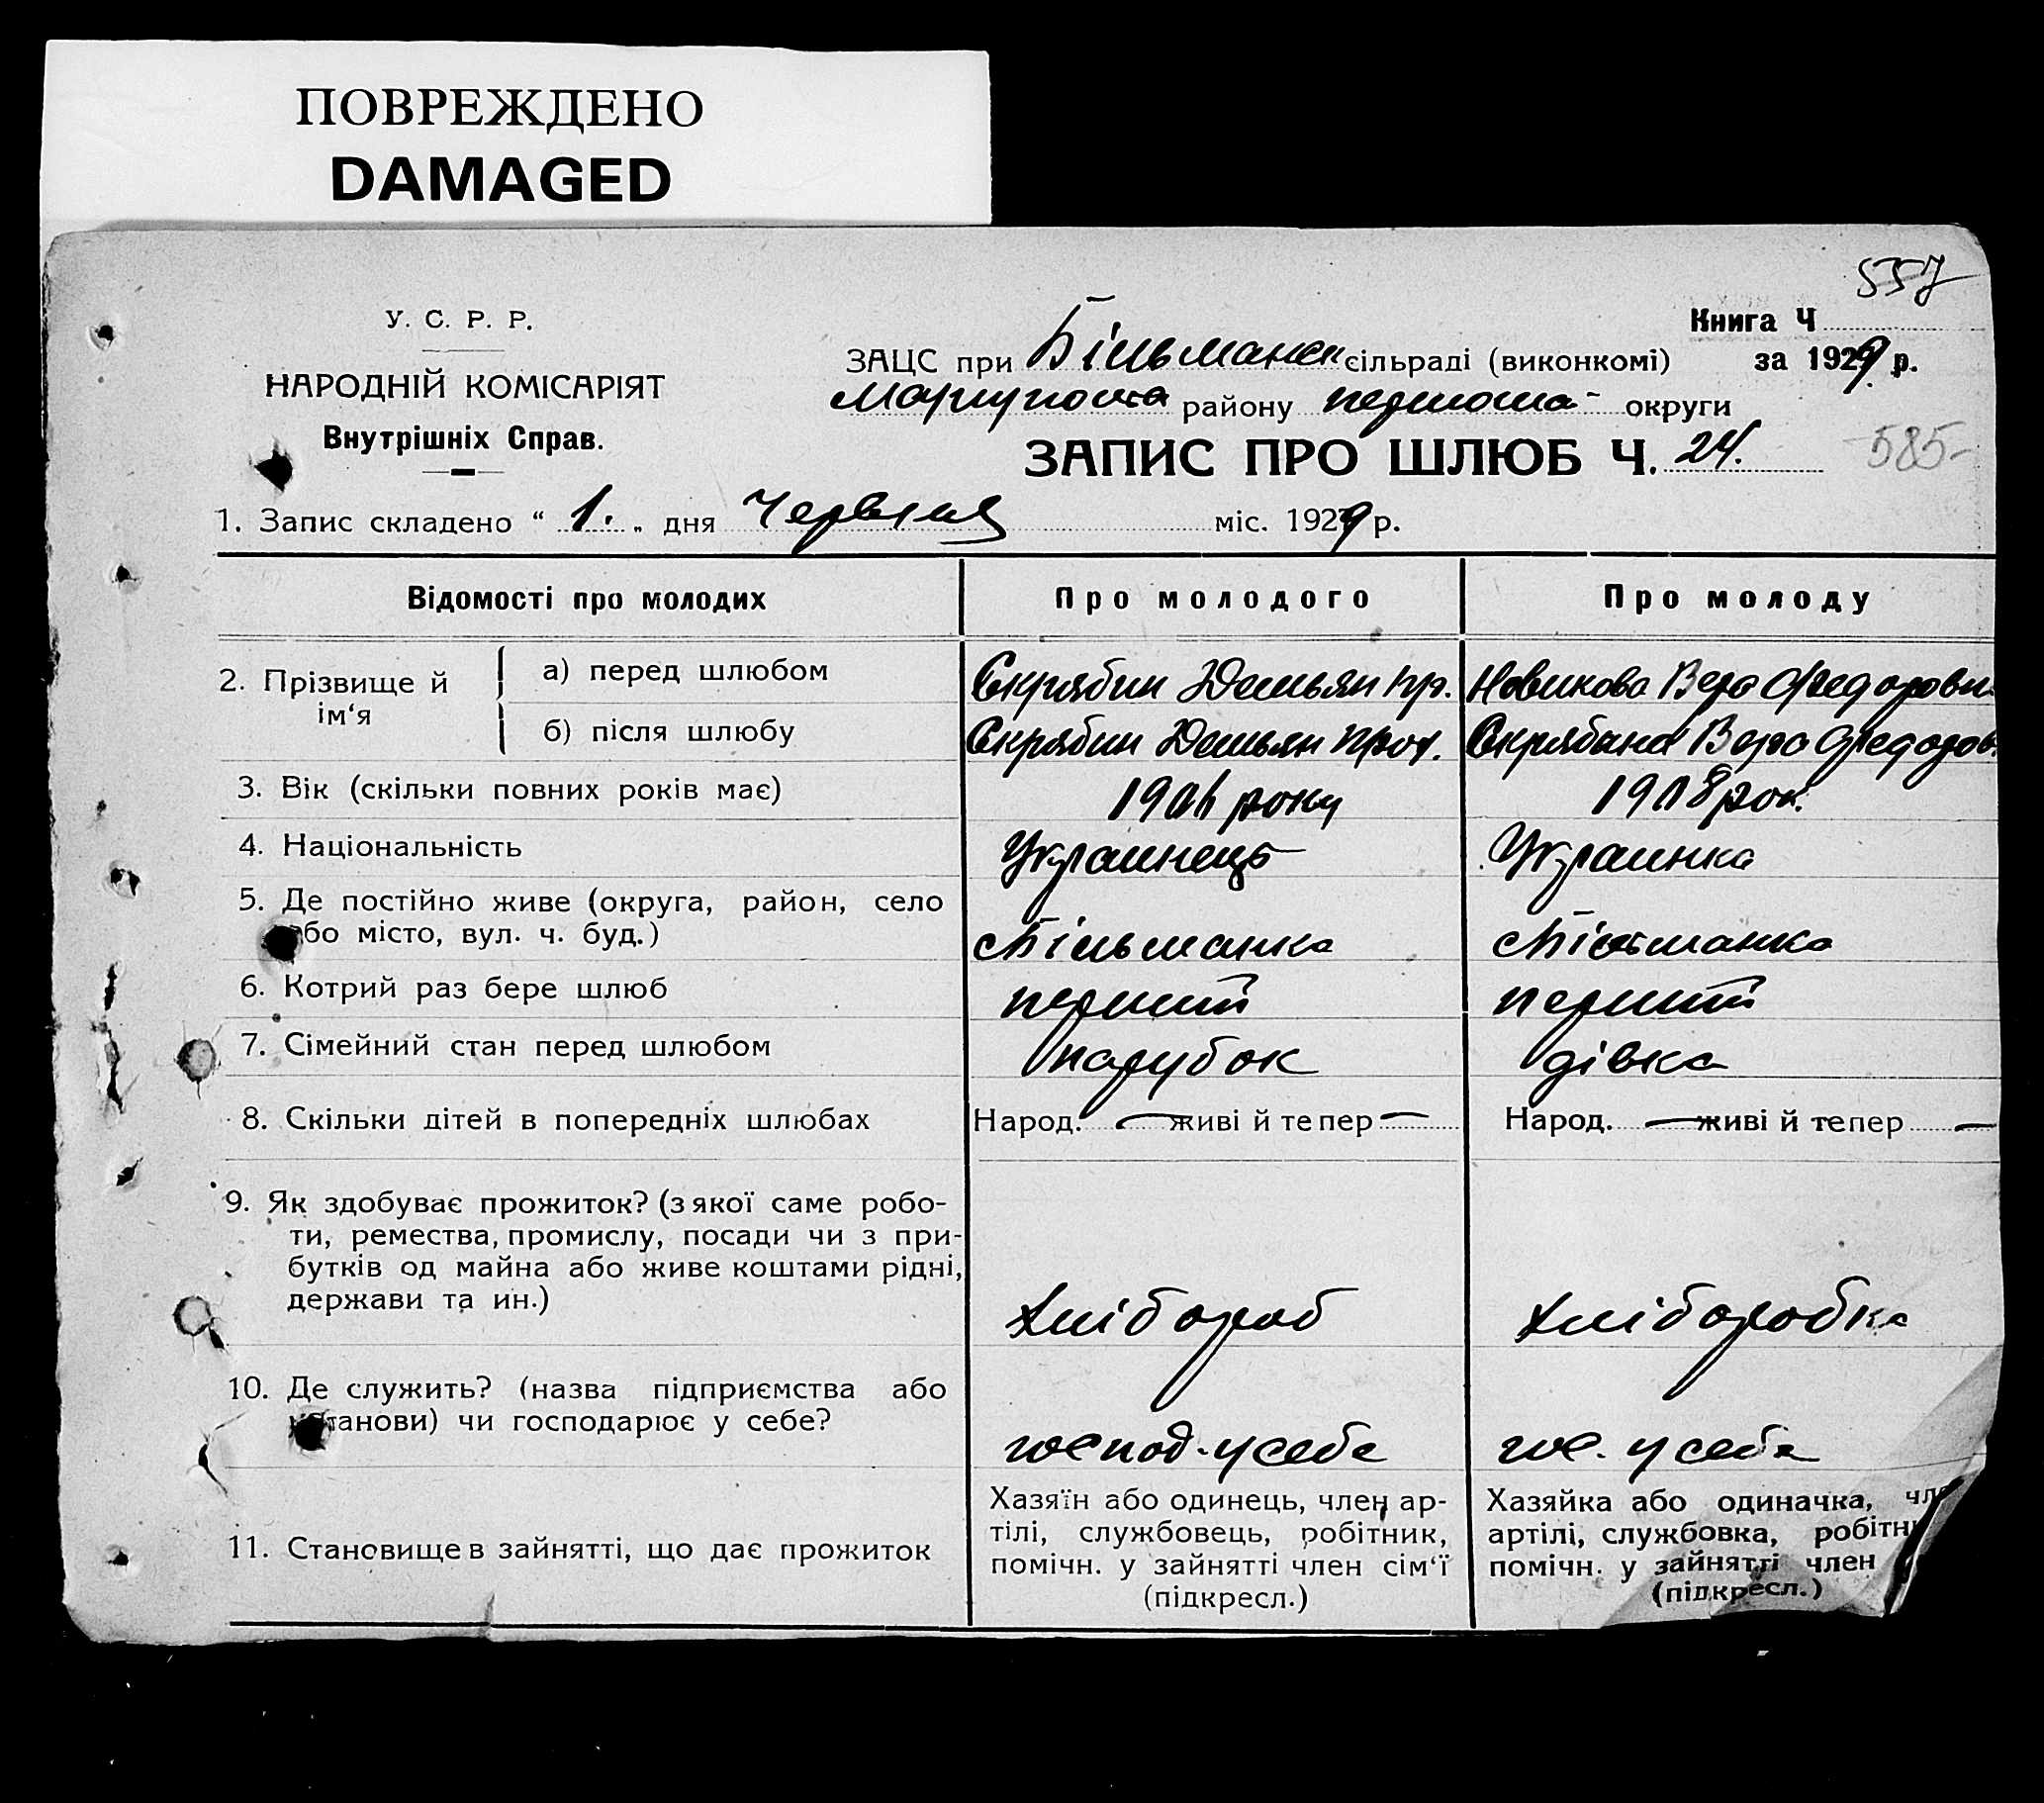 ПОВРЕЖДЕНО
DAMAGED
557
У. С. Р. Р.
НАРОДНІЙ КОМІСАРІЯТ
Внутрішніх Справ.
Книга Ч
ЗАЦС при Більманск сільраді (виконкомі) за 1929 р.
району округи
ЗАПИС ПРО ШЛЮБ Ч. 24.
585-
1. Запис складено “ 1. „ дня Червня міс. 1929 р.
Відомості про молодих Про молодого Про молоду
2. Прізвище й ім‘я
а) перед шлюбом Скрябин Демьян пр. Новикова Вера Федоровн.
б) після шлюбу Скрябин Демьян Прок. Скрябина Вера Федоров.
3. Вік (скільки повних років має) 1906 року 1908 рок.
4. Національність Украинець Украинка
5. Де постійно живе (округа, район, село
або місто, вул. ч. буд.) с Більманка с Більманка
6. Котрий раз бере шлюб перший перший
7. Сімейний стан перед шлюбом парубок дівка
8. Скільки дітей в попередніх шлюбах Народ. — живі й тепер — Народ. — живі й тепер —
9. Як здобуває прожиток? (з якої саме робо-
ти, ремества, промислу, посади чи з при-
бутків од майна або живе коштами рідні,
держави та ин.) хлібороб хліборобка
10. Де служить? (назва підприємства або
установи) чи господарює у себе? господ. у себе гос. у себе
11. Становище в зайнятті, що дає прожиток
Хазяїн або одинець, член ар-
тілі, службовець, робітник,
помічн. у зайнятті член сім‘ї
(підкресл.)
Хазяйка або одиначка, чле
артілі, службовка, робітн
помічн. у зайнятті член
(підкресл.)